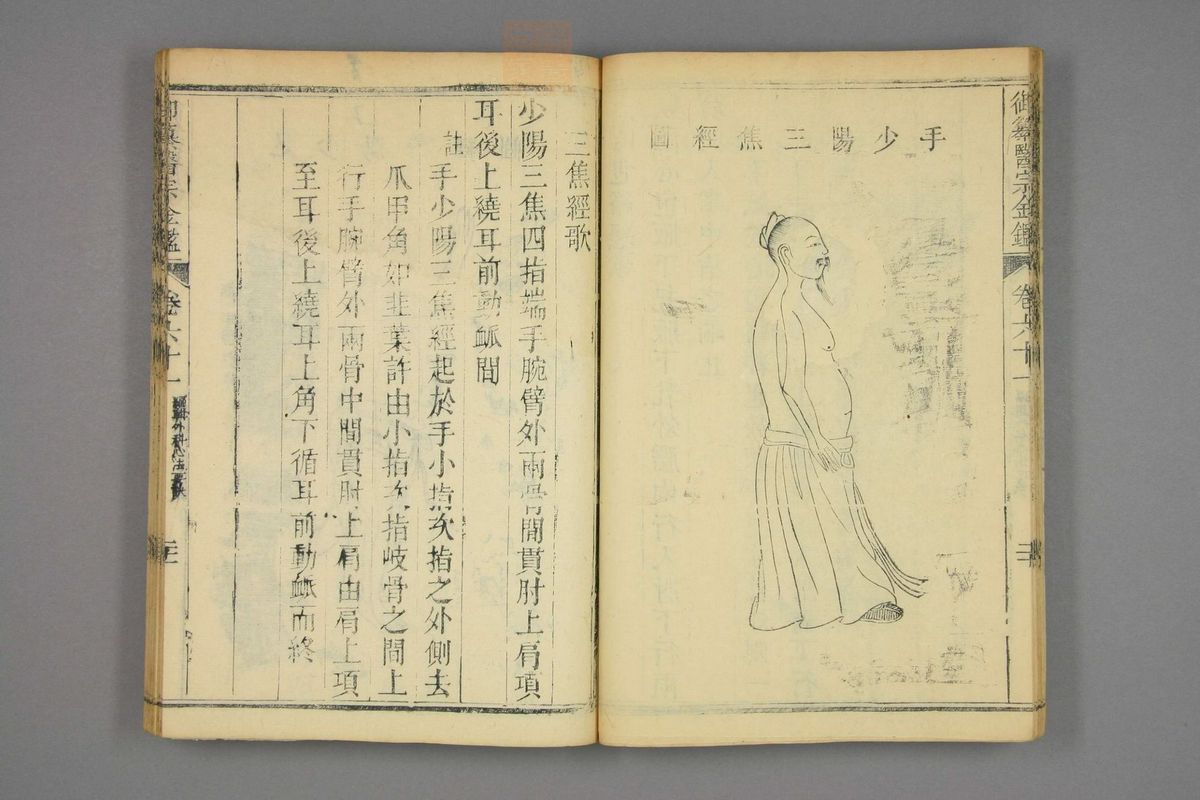 御纂醫宗金鑑
卷六十一
手少陽三焦經圖
三焦經歌
少陽三焦四指端手腕臂外兩骨間貫肘上肩項
耳後上繞耳前動脈間
註
手少陽三焦經起於手小指次指之外側去
爪甲角如韭葉許由小指次指岐骨之間上
行手腕臂外兩骨中間貫肘上肩由肩上項
至耳後上繞耳上角下循耳前動脈而終
御纂醫宗金鑑
卷六十一
外科心法要訣